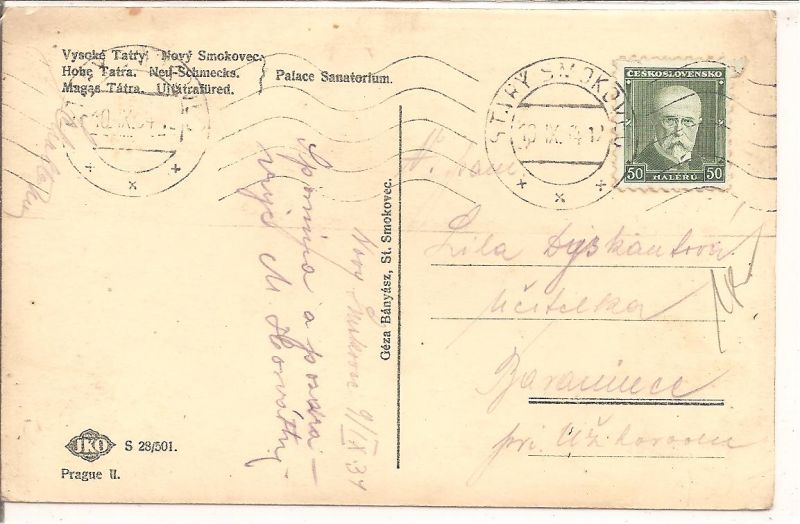 Vysoké Tatry. Nový Smokovec.
Hohe Tatra. Neu-Schmecks.
Magas Tátra. Ujtátrafüred.
Palace Sanatorium.
STARÝ SMOKOVEC
10.IX.34.12
ČESKOSLOVENSKO
50 HALÉŘŮ 50
Lila Dyskantová
učitelka
Baranince
pri Užhorodu
Géza Bányász, St. Smokovec.
Nový Smokovec 9/IX 34
Spomína a pozdra-
vuje M. Horváthy
IKO
S 28/501.
Prague II.